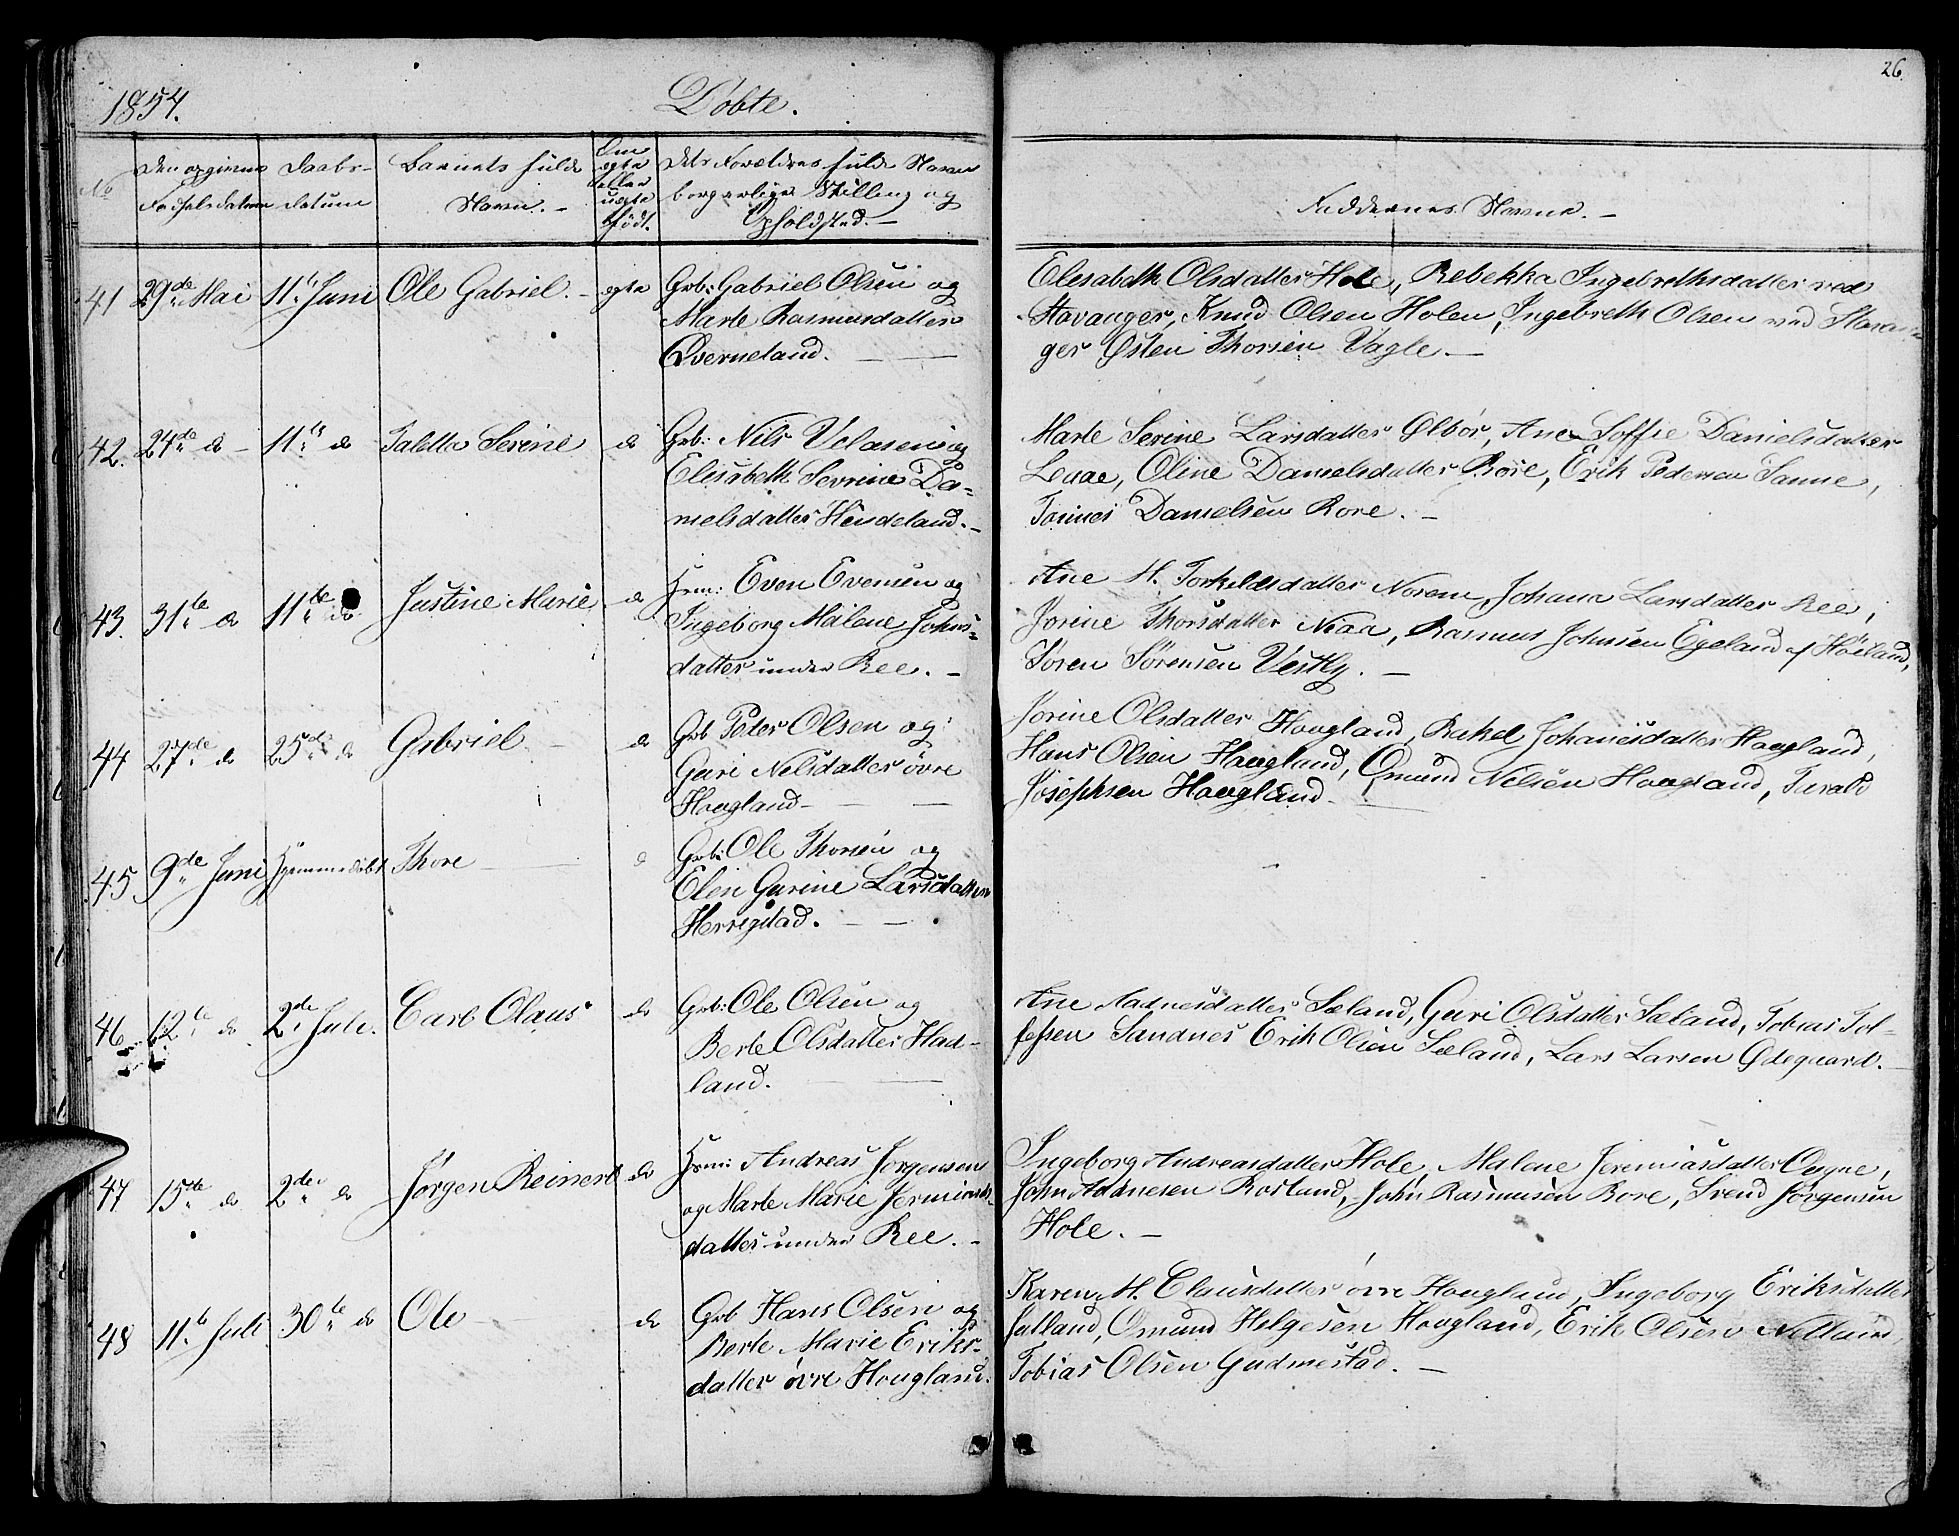 1854.
Døbte.
26.
No
Den opgivne Fødselsdatum
Daabs-datum
Barnets fulde Navn. -
Om egte eller uegte født.
Dets Forældres fulde Navne borgerlige Stilling og Opholdsted. -
Faddernes Navne. -
41 29de Mai 11te Juni Ole Gabriel. - egte
Grb: Gabriel Olsen og
Marte Rasmusdatter
Qverneland. -
Elesabeth Olsdatter Hole, Rebekka Ingebrethsdatter ved
Stavanger, Knud Olsen Holen, Ingebreth Olsen ved Stavan-
ger Østen Thorsen Vagle. -
42. 24de do - 11te do Taletta Serine do
Grb: Nils Velasen og
Elisabeth Sevrine Da-
nielsdatter Hendeland. -
Marte Serine Larsdatter Ølbør, Ane Soffie Danielsdatter
Leuae, Oline Danielsdatter Røre, Erik Pedersen Sanne,
Tønnes Danielsen Rore. -
43. 31te do 11te do Justine Marie. do
Hsm: Even Evensen og
Ingeborg Malene Johns-
datter under Ree. -
Ane M. Torkildsdatter Norem, Johana Larsdatter Ree,
Jorine Thorsdatter Niaa, Rasmus Johnsen Egeland af Høiland,
Søren Sørensen Vestly. -
44 27de do 25de do Gabriel. - do
Grb Peter Olsen og
Guri Nilsdatter øvre
Haugland -
Jorine Olsdatter Haugland, Rakel Johanesdatter Haugland,
Hans Olsen Haugland, Omund Nilsen Haugland, Turald
Josephsen Haugland -
45. 9de Juni Hjemmedøbt Thore - do
Grb: Ole Thorsen og
Elen Gurine Larsdatter
Herrigstad. -
46 12te do 2de Juli. Carl Olaus do
Grb: Ole Olsen og
Berte Olsdatter Had-
land.
Ane Aadnesdatter Sæland, Guri Olsdatter Sæland, Tobias Tol-
lefsen Sandnes Erik Olsen Sæland, Lars Larsen Ødegaard. -
47 15te do 2de do Jørgen Reinert do
Hsm: Andreas Jørgensen
og Marte Marie Jermias-
datter under Ree. -
Ingeborg Andreasdatter Hole, Malene Jeremiasdatter Oygne,
John Aadnesen Rosland, John Rasmusen Rore, Svend Jørgensen
Hole. -
48 11te Juli 30te do Ole - do
Grb Hans Olsen og
Berte Marie Eriks-
datter øvre Haugland.
Karen M. Clausdatter øvre Haugland, Ingeborg Eriksdatter
Julland, Omund Helgesen Haugland, Erik Olsen Netland,
Tobias Olsen Gudmestad. -